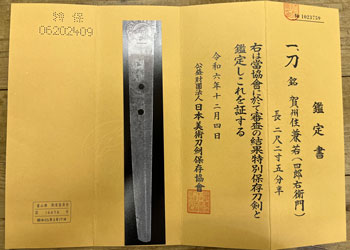 鑑定書
一、刀 銘 賀州住兼若(四郎右衛門)
長 二尺二寸五分半
右は當協會に於て審査の結果特別保存刀剣と
鑑定しこれを証する
令和六年十二月四日
公益財団法人 日本美術刀剣保存協會
特保
06202409